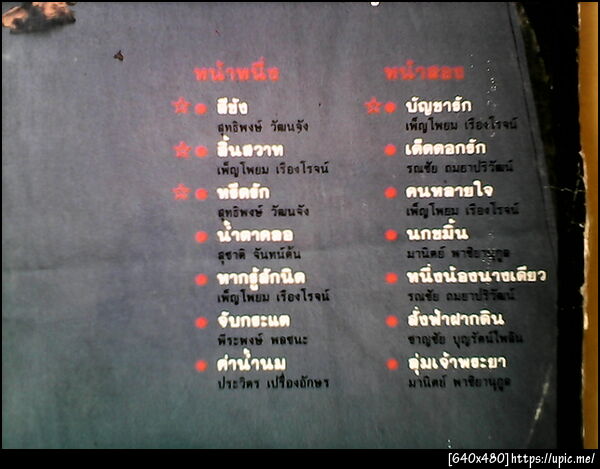 หน้าหนึ่ง
สีชัง
สุทธิพงษ์ วัฒนจัง
สิ้นสวาท
เพ็ญไพยม เรืองโรจน์
หรีดรัก
สุทธิพงษ์ วัฒนจัง
น้ำตาคลอ
สุชาติ จันทน์ต้น
หากรู้สักนิด
เพ็ญไพยม เรืองโรจน์
จับกระแต
พีระพงษ์ พลชนะ
ค่าน้ำนม
ประวิตร เปรื่องอักษร
หน้าสอง
บัญชารัก
เพ็ญไพยม เรืองโรจน์
เด็ดดอกรัก
รณชัย ถมยาปริวัฒน์
คนหลายใจ
เพ็ญไพยม เรืองโรจน์
นกขมิ้น
มานิตย์ พาชิยานุกูล
หนึ่งน้องนางเดียว
รณชัย ถมยาปริวัฒน์
สั่งฟ้าฝากดิน
ชาญชัย บุญรัตน์ไพลิน
ลุ่มเจ้าพระยา
มานิตย์ พาชิยานุกูล
[640x480]https://upic.me/